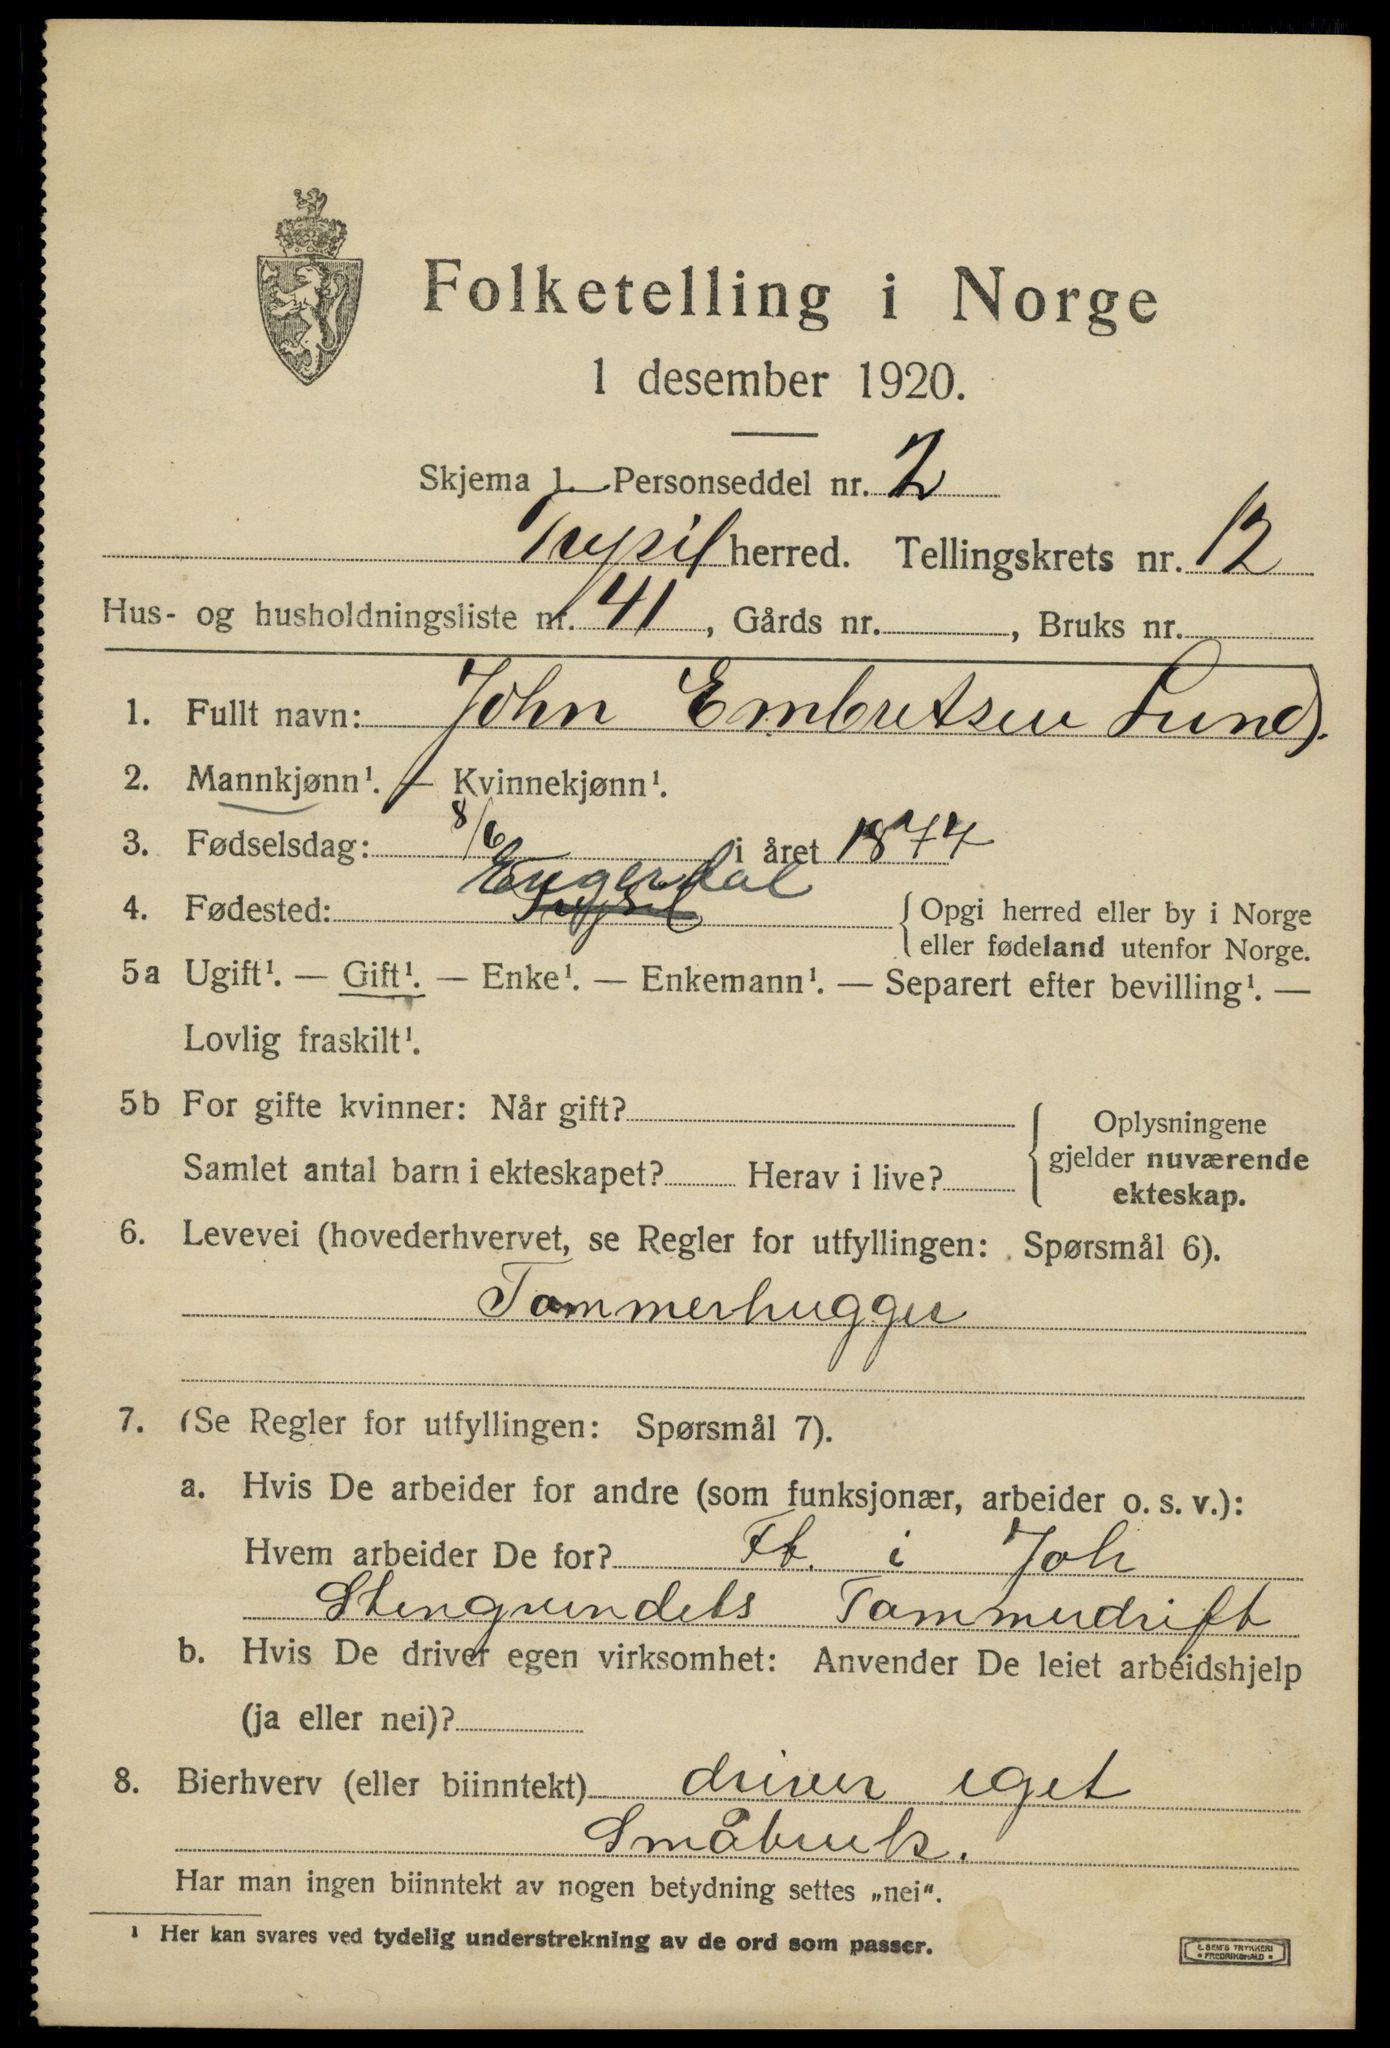 Folketelling i Norge
1 desember 1920.
Skjema 1. Personseddel nr. 2
Trysil herred. Tellingskrets nr. 12
Hus- og husholdningsliste nr. 41, Gårds nr. , Bruks nr.
1. Fullt navn: John Embretsen Lund.
2. Mannkjønn¹. — Kvinnekjønn¹.
3. Fødselsdag: 8/6 i året 1874
Engerdal
4. Fødested: Trysil {Opgi herred eller by i Norge
eller fødeland utenfor Norge.
5a Ugift¹. — Gift¹. — Enke¹. — Enkemann¹. — Separert efter bevilling¹. —
Lovlig fraskilt¹.
5b For gifte kvinner: Når gift? { Oplysningene
gjelder nuværende
Samlet antal barn i ekteskapet? Herav i live?
ekteskap.
6. Levevei (hovederhvervet, se Regler for utfyllingen: Spørsmål 6).
Tømmerhugger
7. (Se Regler for utfyllingen: Spørsmål 7).
a. Hvis De arbeider for andre (som funksjonær, arbeider o. s. v.):
Hvem arbeider De for? Ft. i Joh
Stengrundets Tømmerdrift
b. Hvis De driver egen virksomhet: Anvender De leiet arbeidshjelp
(ja eller nei)?
8. Bierhverv (eller biinntekt) driver eget
Småbruk.
Har man ingen biinntekt av nogen betydning settes „nei“.
¹ Her kan svares ved tydelig understrekning av de ord som passer.
E. SEM'S TRYKKERI
* FREDRIKSHALD *